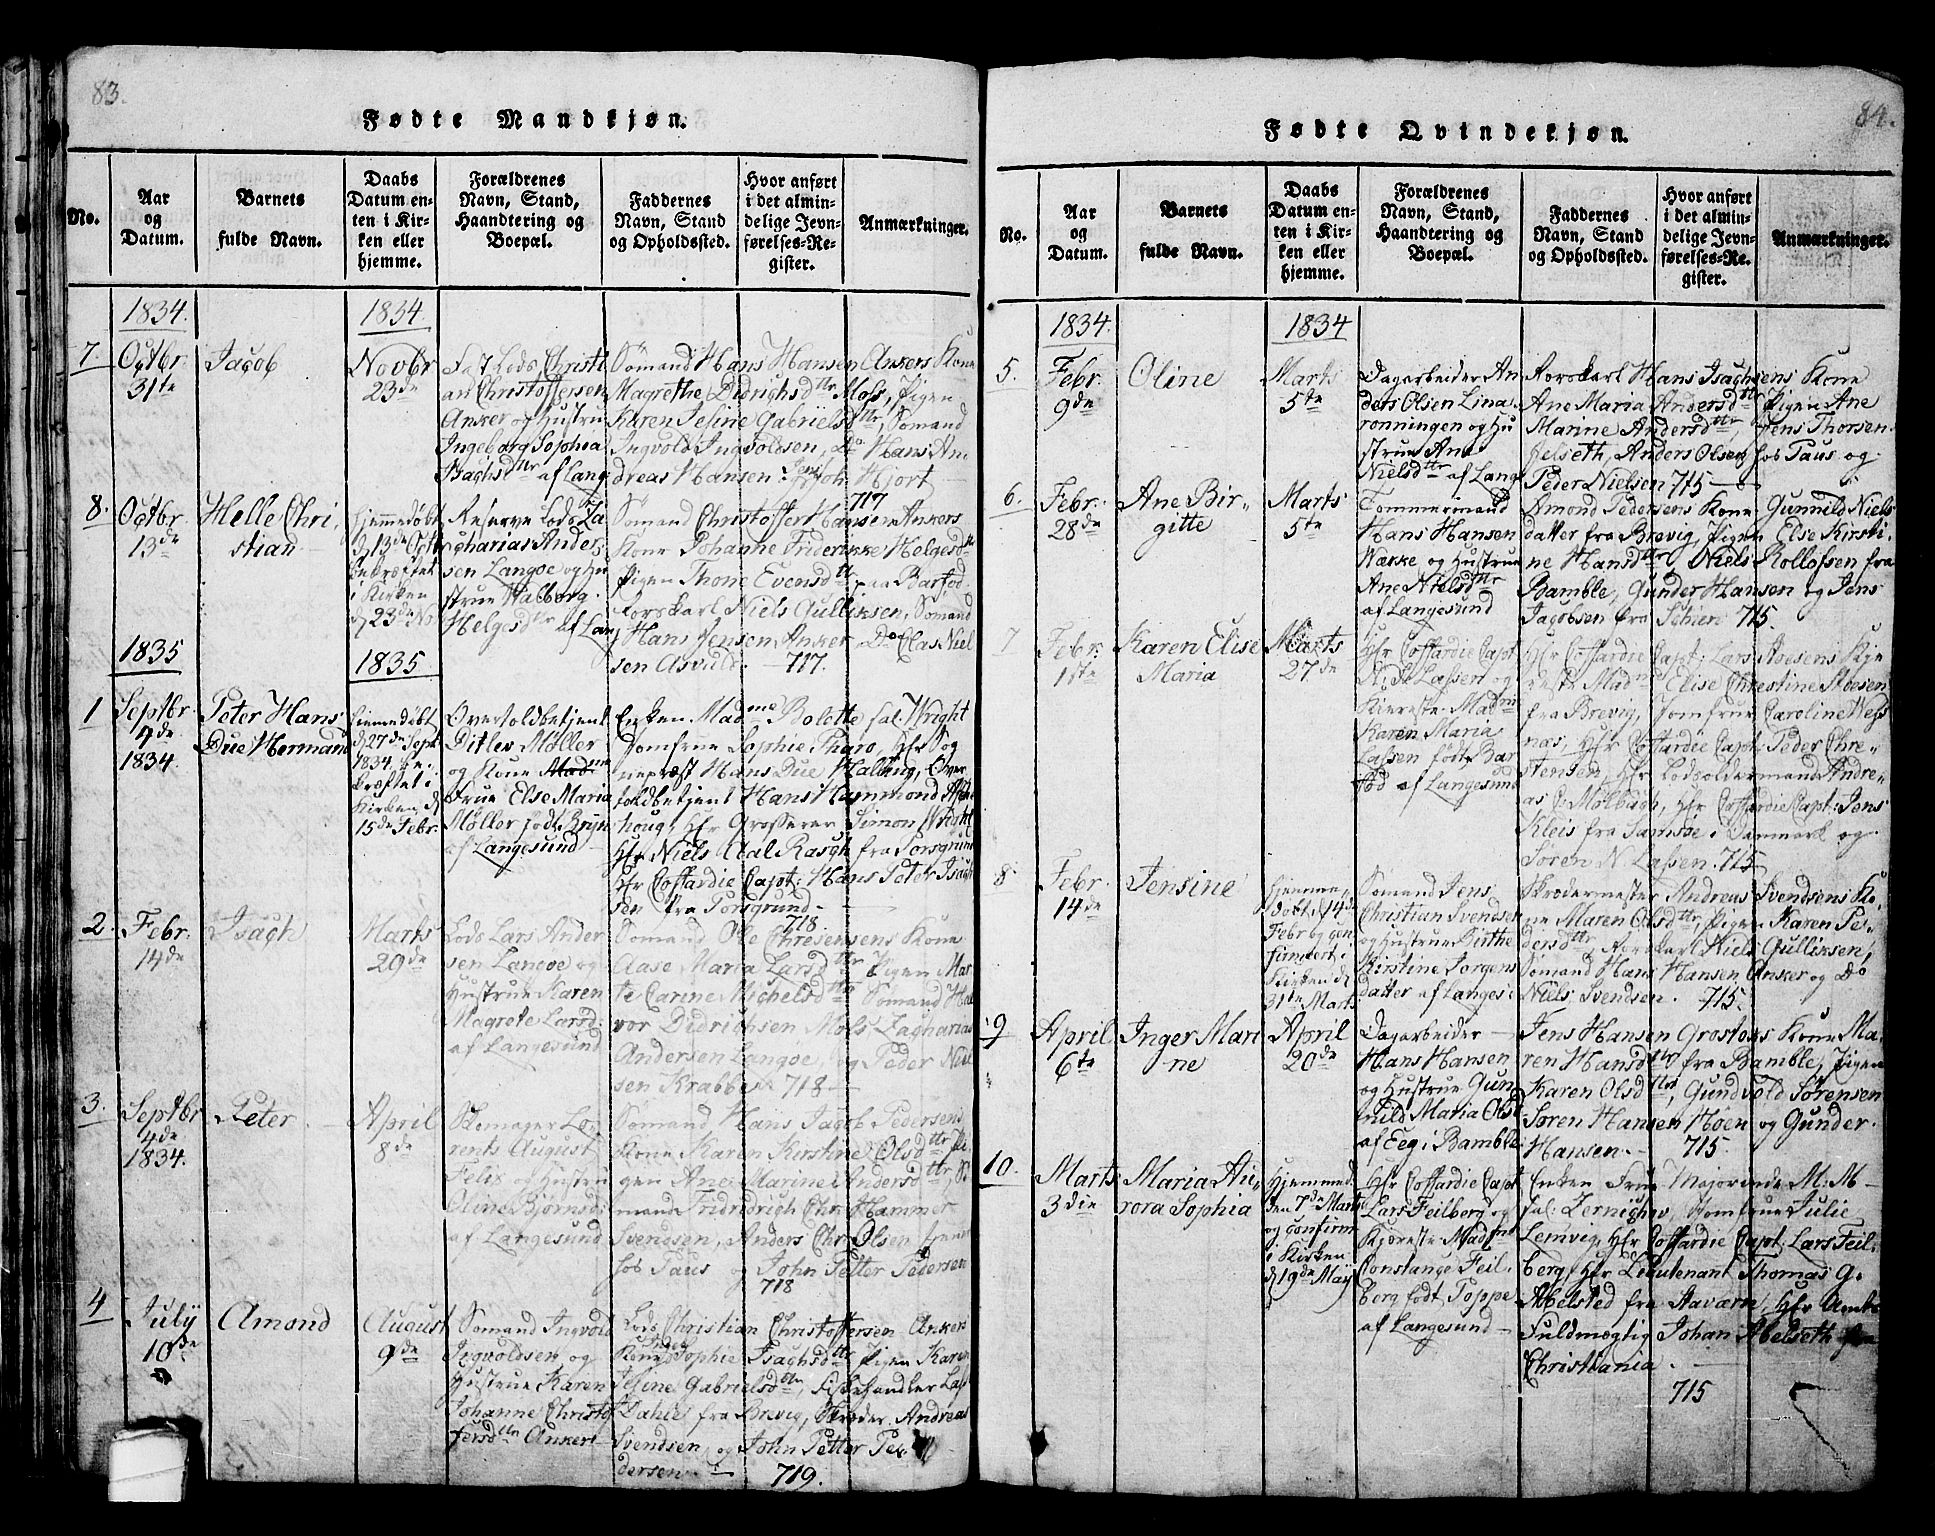 83.
Fødte Mandkjøn.
No.
Aar
og
Datum.
Barnets
fulde Navn.
Daabs
Datum en-
ten i Kir-
ken eller
hjemme.
Forældrenes
Navn, Stand,
Haandtering og
Boepæl.
Faddernes
Navn, Stand
og Opholdssted.
Hvor anført
i det almin-
delige Jevn-
førelses-Re-
gister.
Anmærkninger.
1834.
1834.
7
Octbr.
31te
Jacob
Novbr
23de
Fast Lods Christi
an Christoffersen
Anker og Hustru
Ingeborg Sophia
Isachsdttr af Lang
Sømand Hans Hansen Ankers Kone
Magrethe Didrichsdttr Moss, Pigen
Karen Jesine Gabrielsdttr, Sømand
Ingvold Ingvoldsen, Do Hans An
dreas Hansen, Hjort
717
8.
Octbr.
13de
Helle Chri
stian
hjemmedøbt
d 13de Octb
bekræftet
i Kirken
d 23de No
Reserve Lods Za
charias Ander
sen Langøe og Hu
strue Walborg
Helgesdttr af Lang
Sømand Christoffer Hansen Ankers
Kone Johanne Friderikke Helgesdtt
Pigen Thone Evensdttr paa Barfod
Aorskarl Niels Gulliksen, Sømand
Hans Jensen Anker, Do Clas Niel
sen Asvuld. 717.
1835
1835.
1
Septbr
4de
1834.
Peter Hans
Due Hermann
hiemmedøbt
d 27de Sept
1834. be-
kræftet i
Kirken d
15de Febr.
Overtoldbetjent
Ditlev Møller
og Kone Madme
Frue Else Maria
Møller født Bryn
af Langesund
Enken Madme Bolette sal. Wright
Jomfrue Sophie Pharo, Hr Sog
nepræst Hans Due Halling, Over
toldbetjent Hans Hammond
houg, Hr Grosserer Simon Wright
Hr Niels Aal Rasch fra Porsgrund
Hr Coffardie Capt: Hans Peter Isach
sen fra Porsgrund
718
2.
Febr.
14de
Isach
Marts
29de
Lods Lars Ander
sen Langøe og
Hustrue Karen
Magrete Larsd
af Langesund
Sømand Ole Chresensens Kone
Aase Maria Larsdttr Pigen Mar
te Carine Michelsdttr Sømand Hal
vor Didrichsen Moss Zacharias
Andersen Langøe, og Peder Niel
sen Krabbe. 718
3.
Septbr
4de
1834.
Peter
April
8de
Skomager Lo-
rents August
Felix og Hustru
Oline Bjørnsd
af Langesund
Sømand Hans Jacob Pedersens
Kone Karen Kirstine Olsdttr Pi
gen Ane Marine Andersdttr, Sø
mand Fridridrich Chr: Hammer
Svendsen, Anders Chr. Olsen
hos Paus og John Petter Pedersen
718
4
July
10de
Amond
August
9de
Sømand Ingvold
Ingvoldsen og
Hustrue Karen
Johanne Christof
fersdttr Anker
Lods Christian Christoffersen Ankers
Kone Sophie Isachsdttr Pigen Karen
Jesine Gabrielsdttr, Fiskehandler Lars
Dahle fra Brevig, Skræder Andreas
Svendsen, og John Petter Pe-
dersen. 719.
84.
Fødte Qvindekjøn.
No.
Aar
og
Datum.
Barnets
fulde Navn.
Daabs
Datum en-
ten i Kir-
ken eller
hjemme.
Forældrenes
Navn, Stand,
Haandtering og
Boepæl.
Faddernes
Navn, Stand
og Opholdssted.
Hvor anført
i det almin-
delige Jevn-
førelses-Re-
gister.
Anmærkninger.
1834.
1834
5.
Febr.
9de
Oline
Marts
5te
Dagarbeider An
ders Olsen Lina
rønningen og Hu
strue Ane
Nielsdttr af Lang
Aorskarl Hans Isachsens Kone
Ane Maria Andersdttr Pigen Ane
Marine Andersdttr, Jens Thorsen
Helseth, Anders Olsen hos Paus og
Peder Nielsen 715
6.
Febr.
28de
Ane Bir-
gitte
Marts
5te
Tømmermand
Hans Hansen
Nække og Hustrue
Ane Nielsdttr
af Langesund
Amond Pedersens Kone Gunnild Niels
datter fra Brevig, Pigen Else Kirsti-
ne Hansdttr Niels Rollofsen fra
Bamble, Gunder Hansen og Jens
Jacobsen fra Schien 715.
7
Febr.
1ste
Karen Elise
Maria
Marts
27de
Hr Coffardie Capt
Lassen og
Kiereste Madm
Karen Maria
Lassen født Bar
fod af Langesund
Hr Coffardie Capt: Lars Stoesens Kje
reste Madme Elise Chrestine Stoesen
fra Brevig, Jomfrue Caroline Ness
næs, Hr Coffardie Capt: Peder Chre-
stensen, Hr Lodsoldermand Andre-
as C. Mølbach, Hr Coffardie Capt: Jens
Kleis fra Samsøe i Danmark og
Søren N. Lassen. 715
8
Febr.
14de
Jensine
hjemme
døbt d 14de
Febr og con
firmert i
Kirken d
31te Marts
Sømand Jens
Christian Svendsen
og Hustrue Birthe
Kirstine Jorgens
datter af Langes:
Skrædermester Andreas Svendsens Ko-
ne Maren Olsdttr, Pigen Karen Pe-
dersdttr, Aorskarl Niels Gulliksen,
Sømand Hans Hansen Anker og Do
Niels Svendsen. 715.
9
April
6te
Inger Mari
ne
April
20de
Dagarbeider
Hans Hansen
og Hustrue Gun
nild Maria Olsd
af Eeg i Bamble
Jens Hansen Grostoks Kone Ma-
ren Hansdttr fra Bamble, Pigen
Karen Olsdttr, Gundvold Sørensen
Søren Hansen Høen og Gunder
Hansen. 715.
10.
Marts
3die
Maria Au-
rora Sophia
Hjemmed.
den 7de Marts
og confirm
i Kirken
d 19de May
Hr Coffardie Capt
Lars Feilberg og
Kjæreste Madme
Constange Feil
berg født Toppe
af Langesund
Enken Frue Majorinde M: M
sal: Zernichov, Jomfrue Julie
Lemvig, Hr Coffardie Capt: Lars Feil-
berg, Hr Lieutenant Thomas G.
Abelsted fra Staværn, Hr Amts
Fuldmægtig Johan Abelseth fra
Christiania.
715